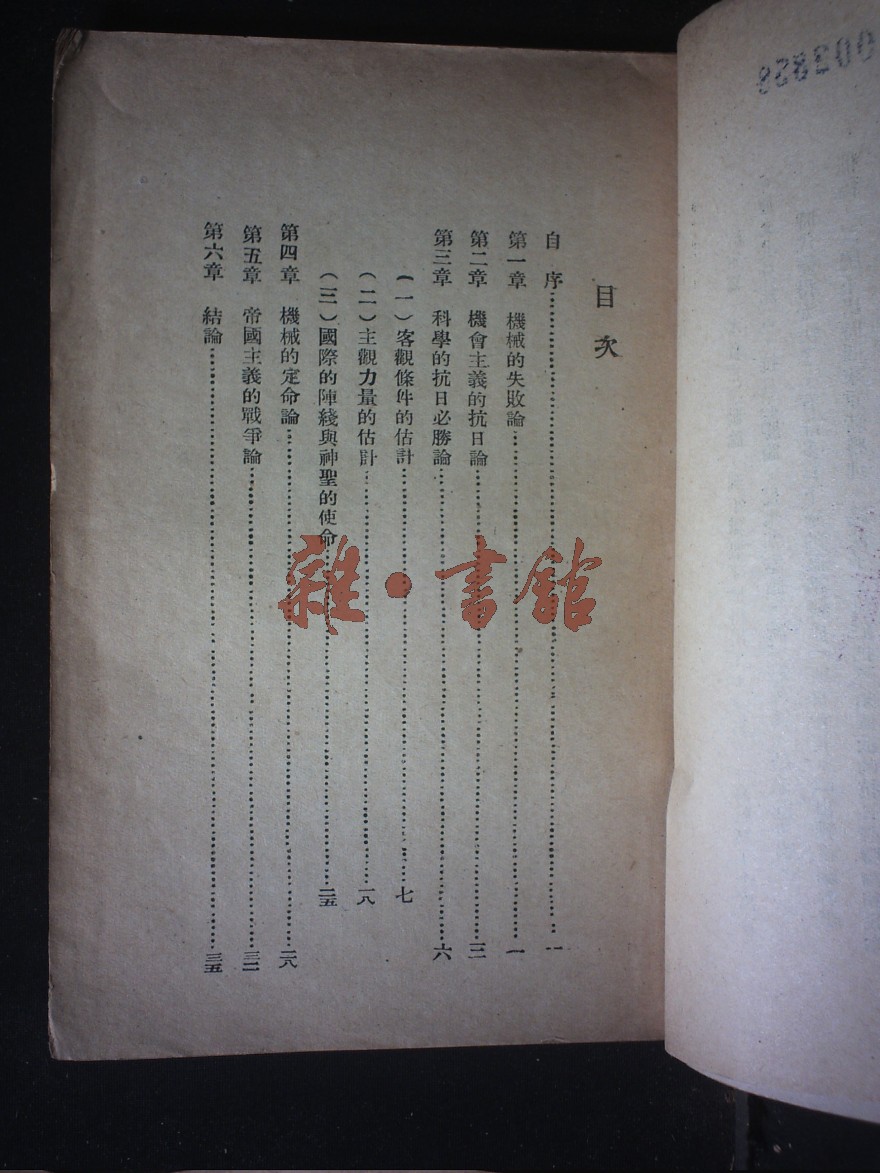 003828
目次
自序…一
第一章 機械的失敗論…一
第二章 機會主義的抗日論…三
第三章 科學的抗日必勝論…六
(一)客觀條件的估計…七
(二)主觀力量的估計…一八
(三)國際的陣綫與神聖的使命…二五
第四章 機械的定命論…二八
第五章 帝國主義的戰爭論…三二
第六章 結論…三五
雜·書館